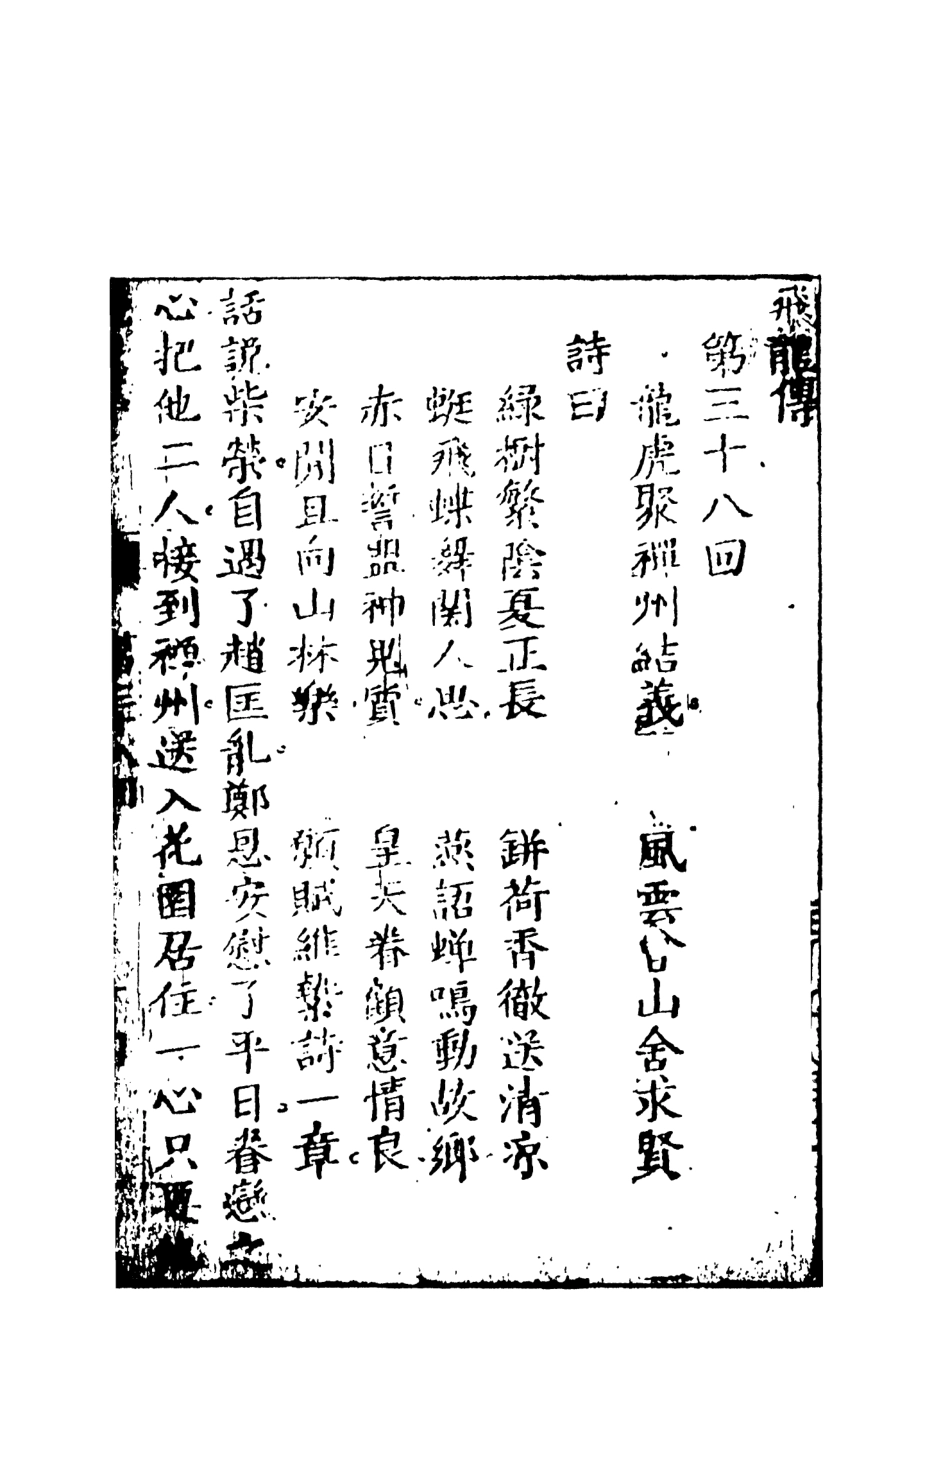 飛龍傳
第三十八回
龍虎聚禪州結義 風雲合山舍求賢
詩曰
綠樹繁陰夏正長 鉼荷香徹送清凉
蜓飛蝶舞関人思 燕語蝉鳴動故鄉
赤日誓盟神鬼質 皇天眷顧意情良
安閒且向山林樂 頻賦維繫詩一章
話説柴榮自遇了趙匡胤鄭恩安慰了平日眷戀之
心把他二人接到禪州送入花園居住一心只要